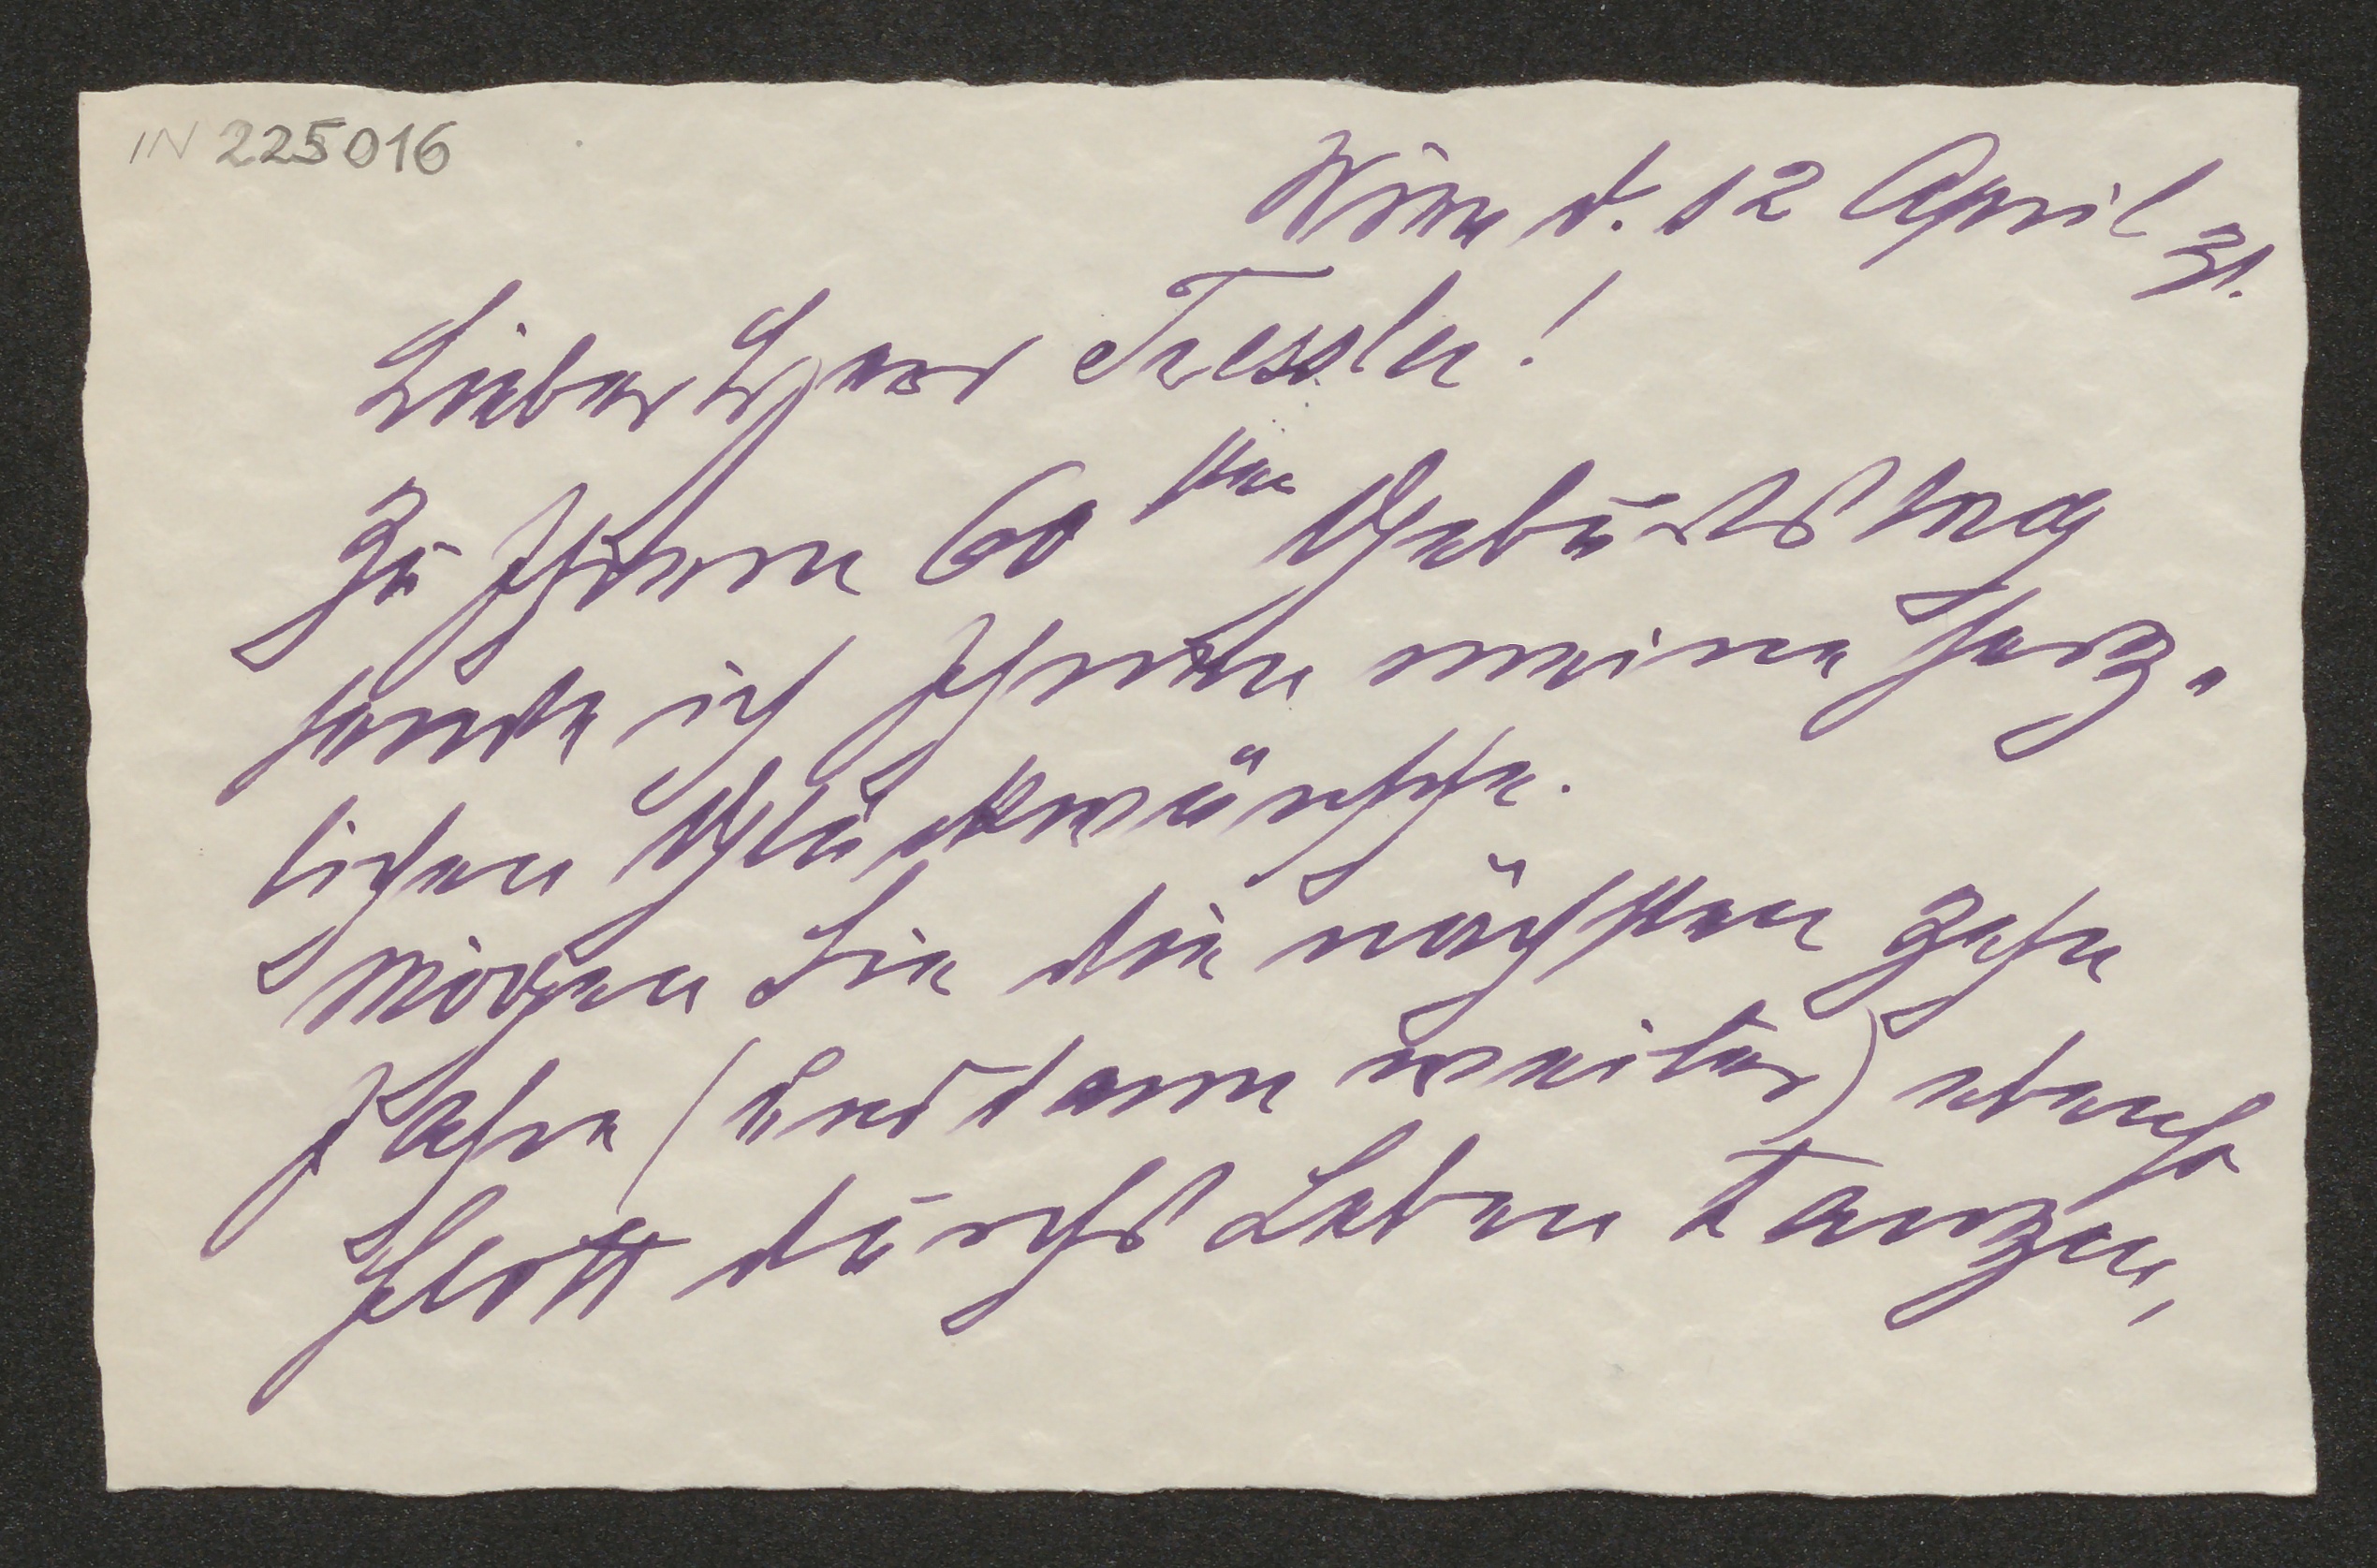 IN 225016
Wien d. 12 April 31.
Lieber Herr Tressler!
Zu Ihrem 60ten Geburtstag
sende ich Ihnen meine herz-
lichen Glückwünsche.
Mögen Sie die nächsten zehn
Jahre (und dann weiter) ebenso
flott durchs Leben tanzen,